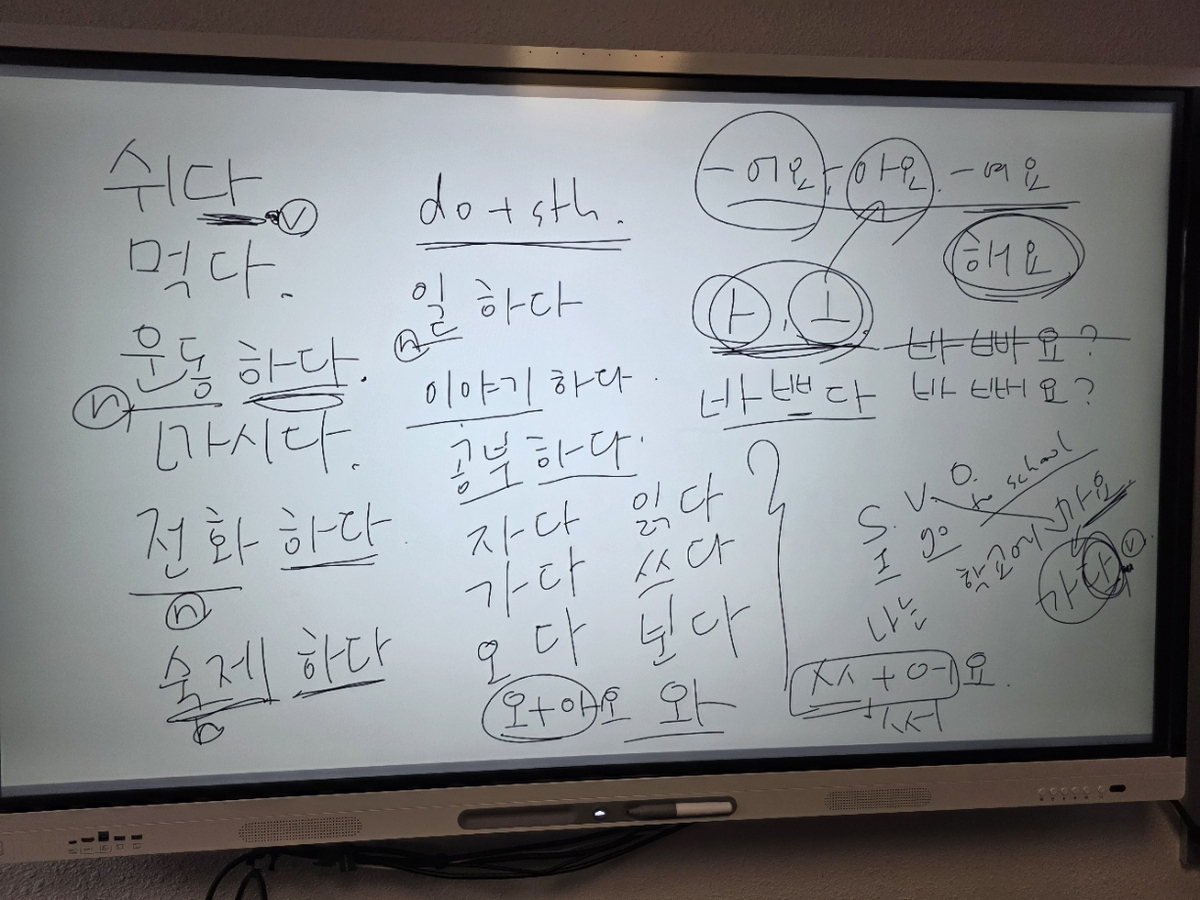 쉬다 ⓥ
먹다.
운동 하다.
ⓝ
마시다.
전화 하다
ⓝ
숙제 하다
n
do + sth.
일 하다
ⓝ
이야기 하다.
공부 하다.
자다 읽다
가다 쓰다
오다 보다
오+아요 와
-어요, 아요. -여요
해요
ㅏ, ㅗ.
바빠요?
바쁘다 바뻐요?
S. V. O.
I go to school
학교에 가요
나는 가다 ⓥ
쓰 + 어요.
써